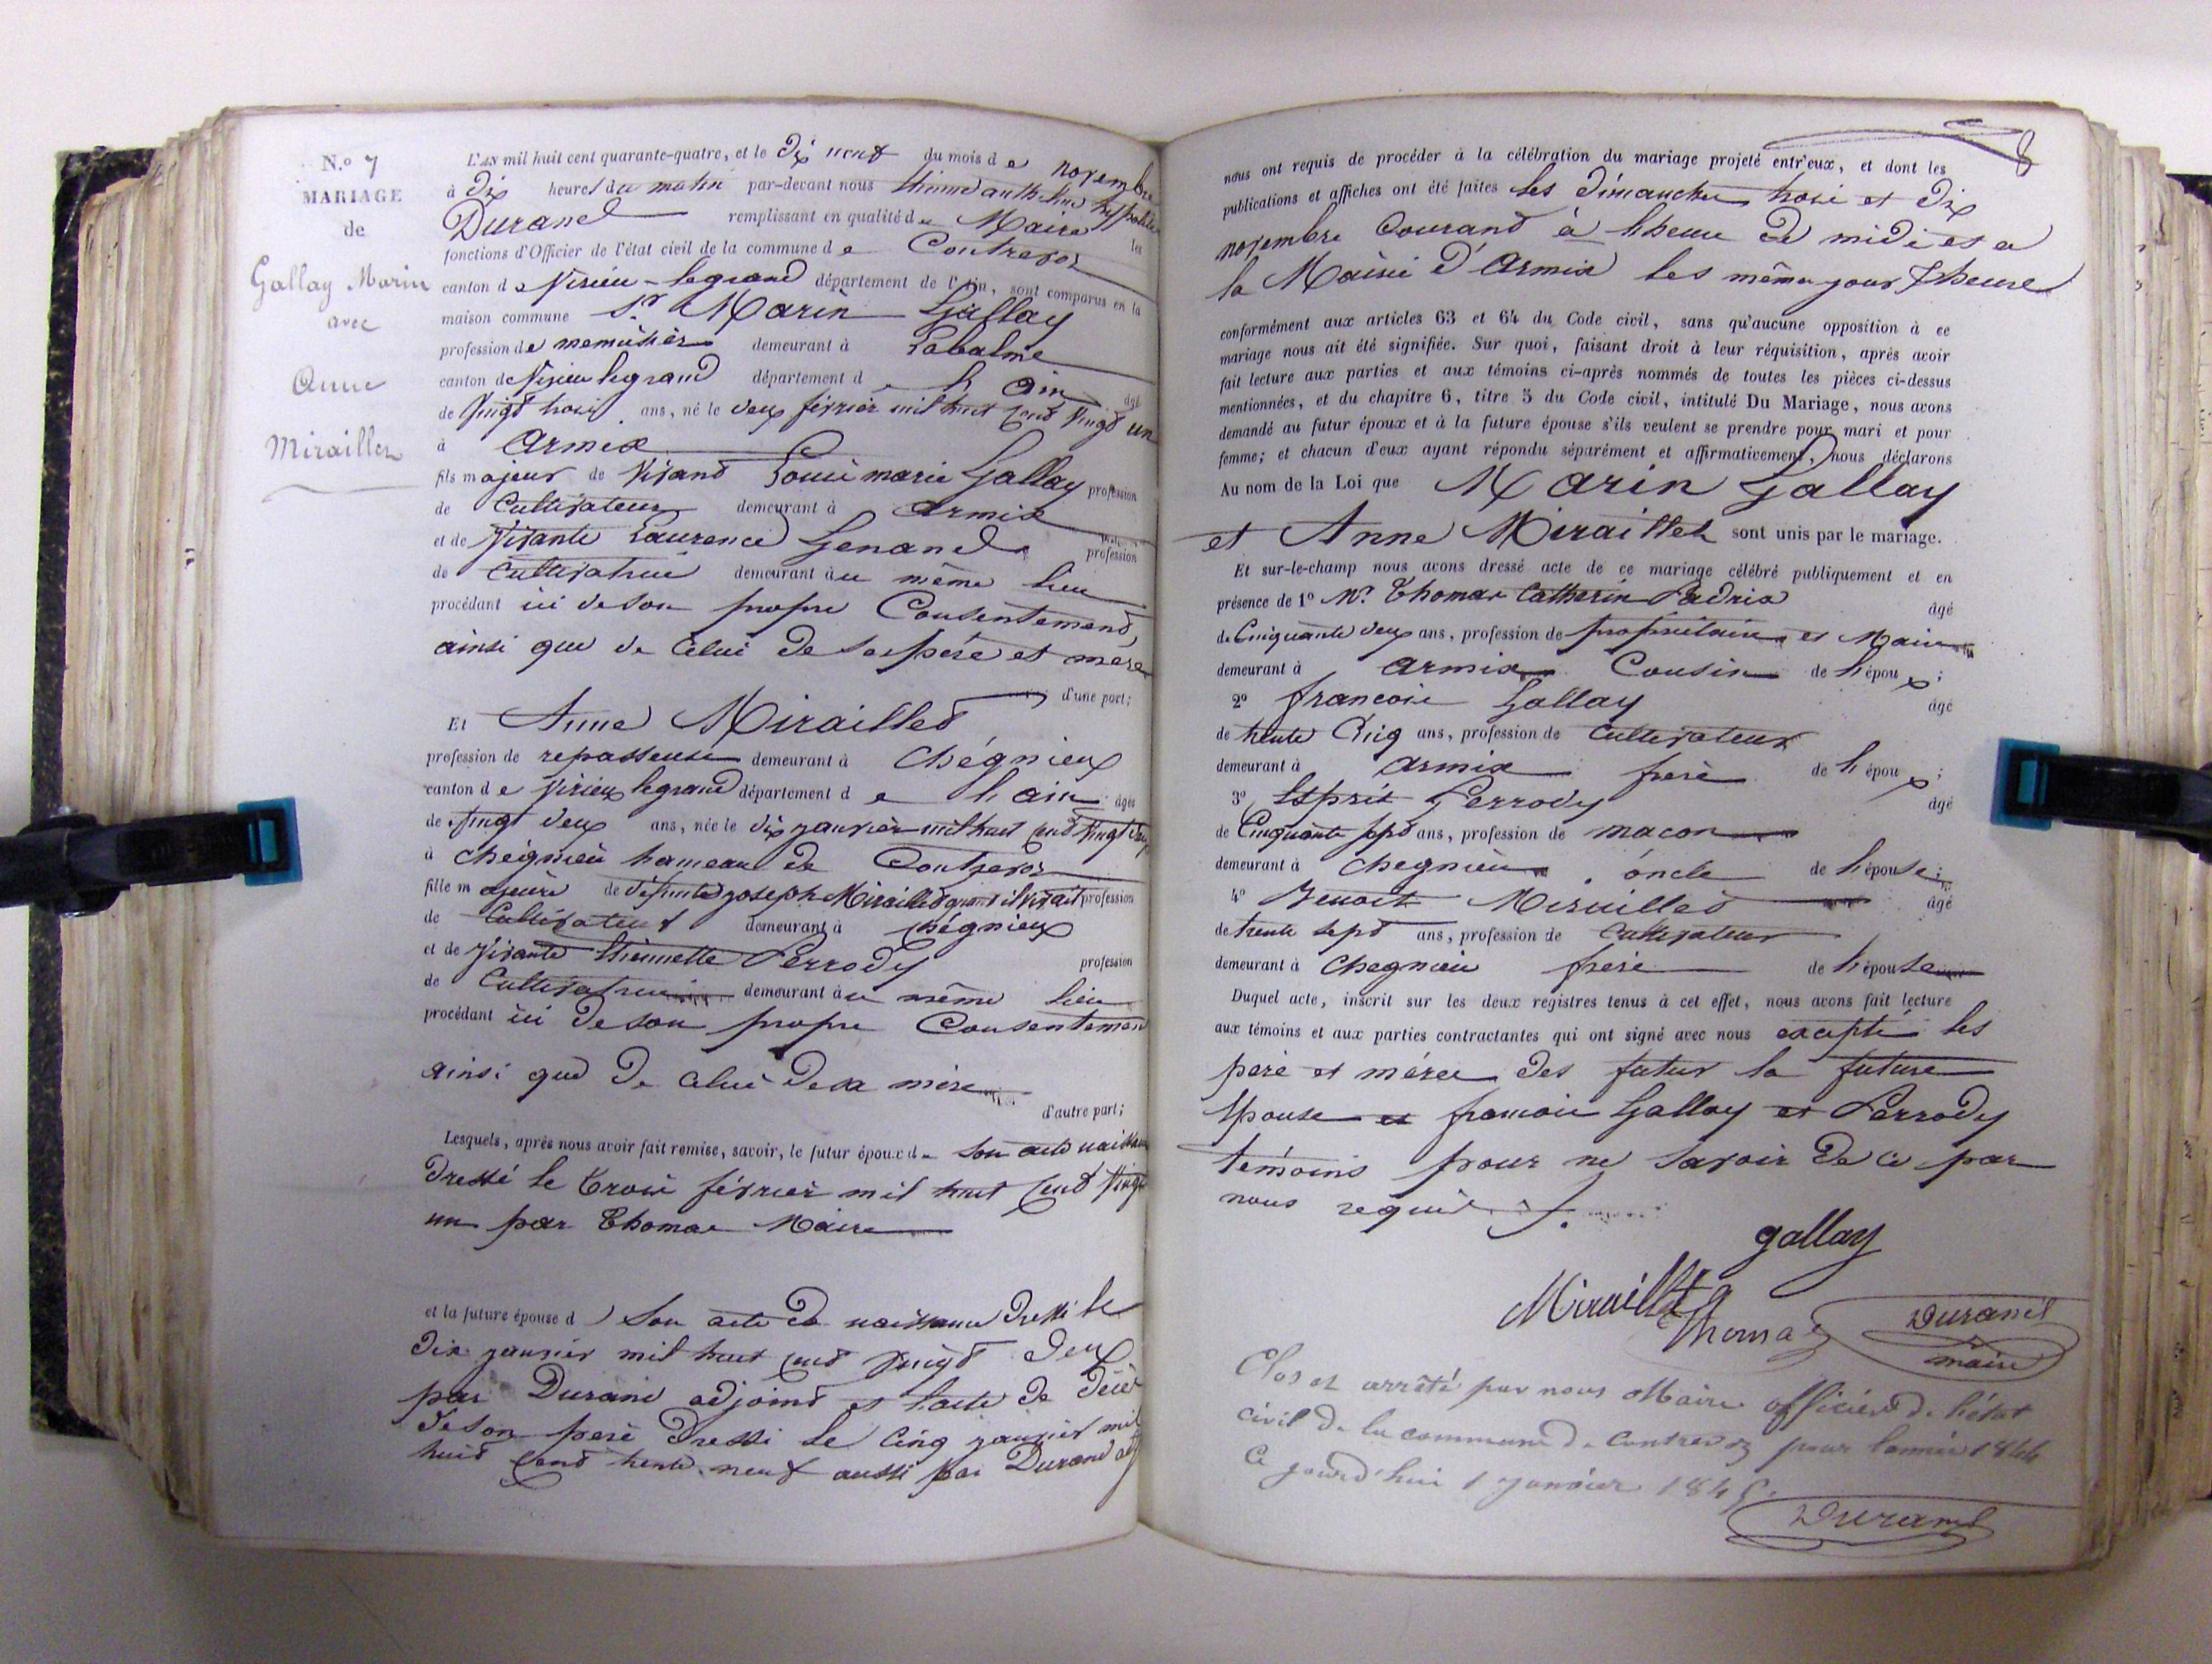 N.o 7
MARIAGE
de
Gallay Marin
avec
Anne
Mirailler
L'AN mil huit cent quarante-quatre, et le Dix neuf du mois de novembre
à Dix heures du matin par-devant nous anthelme hyppolite
Durand remplissant en qualité de Maire les
fonctions d'Officier de l'état civil de la commune de Contrevoz
canton de Virieu-legrand département de l'Ain, sont comparus en la
maison commune S.r Marin Gallay
profession de menuisier demeurant à Labalme
canton de Virieu legrand département de l'ain âgé
de Vingt trois ans, né le deux février mil huit Cent Vingt un
à Armix
fils majeur de Vivant Louis marie Gallay profession
de Cultivateur demeurant à Armix
et de Vivante Laurence Genand profession
de Cultivatrice demeurant au même lieu
procédant ici de son propre Consentement
ainsi que de Celui de ses père et mère
d'une part;
Et Anne Mirailled
profession de repasseuse demeurant à Chégnieux
canton de Virieux legrand département de l'ain âgée
de Vingt deux ans, née le dix janvier mil huit Cent Vingt deux
à cheignieu hameau de Contrevoz
fille majeure de défunt joseph Mirailled quand il vivait profession
de Cultivateur demeurant à Chégnieux
et de Vivante thiennette Perrody profession
de Cultivatrice demeurant au même lieu
procédant ici de son propre Consentement
ainsi que de Celui de sa mère
d'autre part;
Lesquels, après nous avoir fait remise, savoir, le futur époux de son acte naissance
dressé le trois février mil huit Cent Vingt
un par Thomas Maire
et la future épouse d son acte de naissance dressé le
dix janvier mil huit cent Vingt deux
par Durand adjoint et l'acte de décès
de son père dressé le Cinq janvier mil
huit Cent trente neuf aussi par Durand adj
8
nous ont requis de procéder à la célébration du mariage projeté entr'eux, et dont les
publications et affiches ont été faites les dimanches trois et dix
novembre Courant à l'heure de midi et a
la Mairie d'Armix les même jour & heure
conformément aux articles 63 et 64 du Code civil, sans qu'aucune opposition à ce
mariage nous ait été signifiée. Sur quoi, faisant droit à leur réquisition, après avoir
fait lecture aux parties et aux témoins ci-après nommés de toutes les pièces ci-dessus
mentionnées, et du chapitre 6, titre 5 du Code civil, intitulé Du Mariage, nous avons
demandé au futur époux et à la future épouse s'ils veulent se prendre pour mari et pour
femme; et chacun d'eux ayant répondu séparément et affirmativement, nous déclarons
Au nom de la Loi que Marin Gallay
et Anne Miraillet sont unis par le mariage.
Et sur-le-champ nous avons dressé acte de ce mariage célébré publiquement et en
présence de 1º Mr Thomas Catherin Padrix âgé
de Cinquante deux ans, profession de propriétaire et Maire
demeurant à Armix Cousin de l'époux;
2º francois Gallay âgé
de trente Cinq ans, profession de Cultivateur
demeurant à Armix frere de l'époux;
3º Esprit Perrody âgé
de Cinquante sept ans, profession de macon
demeurant à Chegnieu oncle de l'épouse;
4º Benoit Mirailled âgé
de trente sept ans, profession de Cultivateur
demeurant à Chegnieu frere de l'épouse
Duquel acte, inscrit sur les deux registres tenus à cet effet, nous avons fait lecture
aux témoins et aux parties contractantes qui ont signé avec nous excepté les
père et mères des futur la future
épouse et francois Gallay et Perrody
témoins pour ne savoir de ce par
nous requis
gallay
Miraillet
Thomas
Durand
maire
Clos et arrêté par nous Maire officier de l'état
civil de la commune de Contrevoz pour l'année 1844
Ce jourd'hui 1 janvier 1845.
Durand